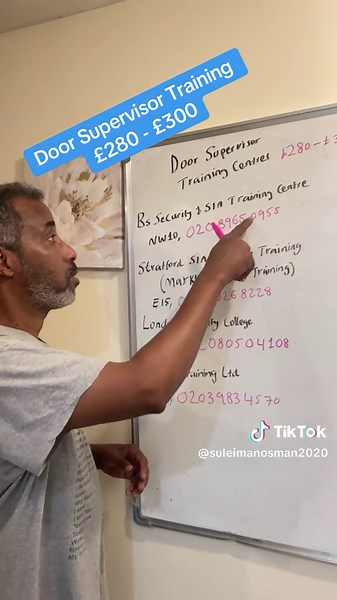 Door Supervisor Training
£280 - £300
Door Supervisor
Training Centres £280-£3
Bs Security & SIA Training Centre
NW10, 02089650955
Stratford SIA Training
(Mark Training)
E15, 0 268228
Lond ty College
2080504108
raining Ltd
02039834570
TikTok
@suleimanosman2020